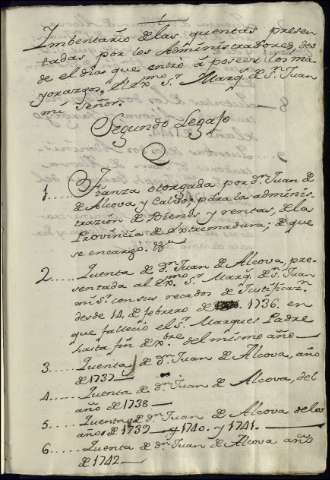 1
Imbentario de las quentas presen-
tadas por los Administradores, des-
de el dia que entrò à poseer los ma-
yorazgos, el Ex.mo S.r Marq.s de S.n Juan
mi Señor.
Segundo Legajo
1. Fianza otorgada por d.n Juan de
de Alcova, y Caldos, para la adminis-
trazion de Bienes y rentas, de la
Provincia de Extremadura, de que
se encargo.
2. Quenta de d.n Juan de Alcova, pre-
sentada al Ex.mo S.r Marq.s de S.n Juan
mi S.r con sus recados de Justificaz.n
desde 14, de febrero de 1736. en
que fallecio el S.r Marques Padre
hasta fin de X.re del mismo año
3. Quenta de d.n Juan de Alcova, año
de 1737
4. Quenta de d.n Juan de Alcova, del
año de 1738
5. Quenta de d.n Juan de Alcova de los
años de 1739 y 1740. y 1741.
6. Quenta de d.n Juan de Alcova año
de 1742